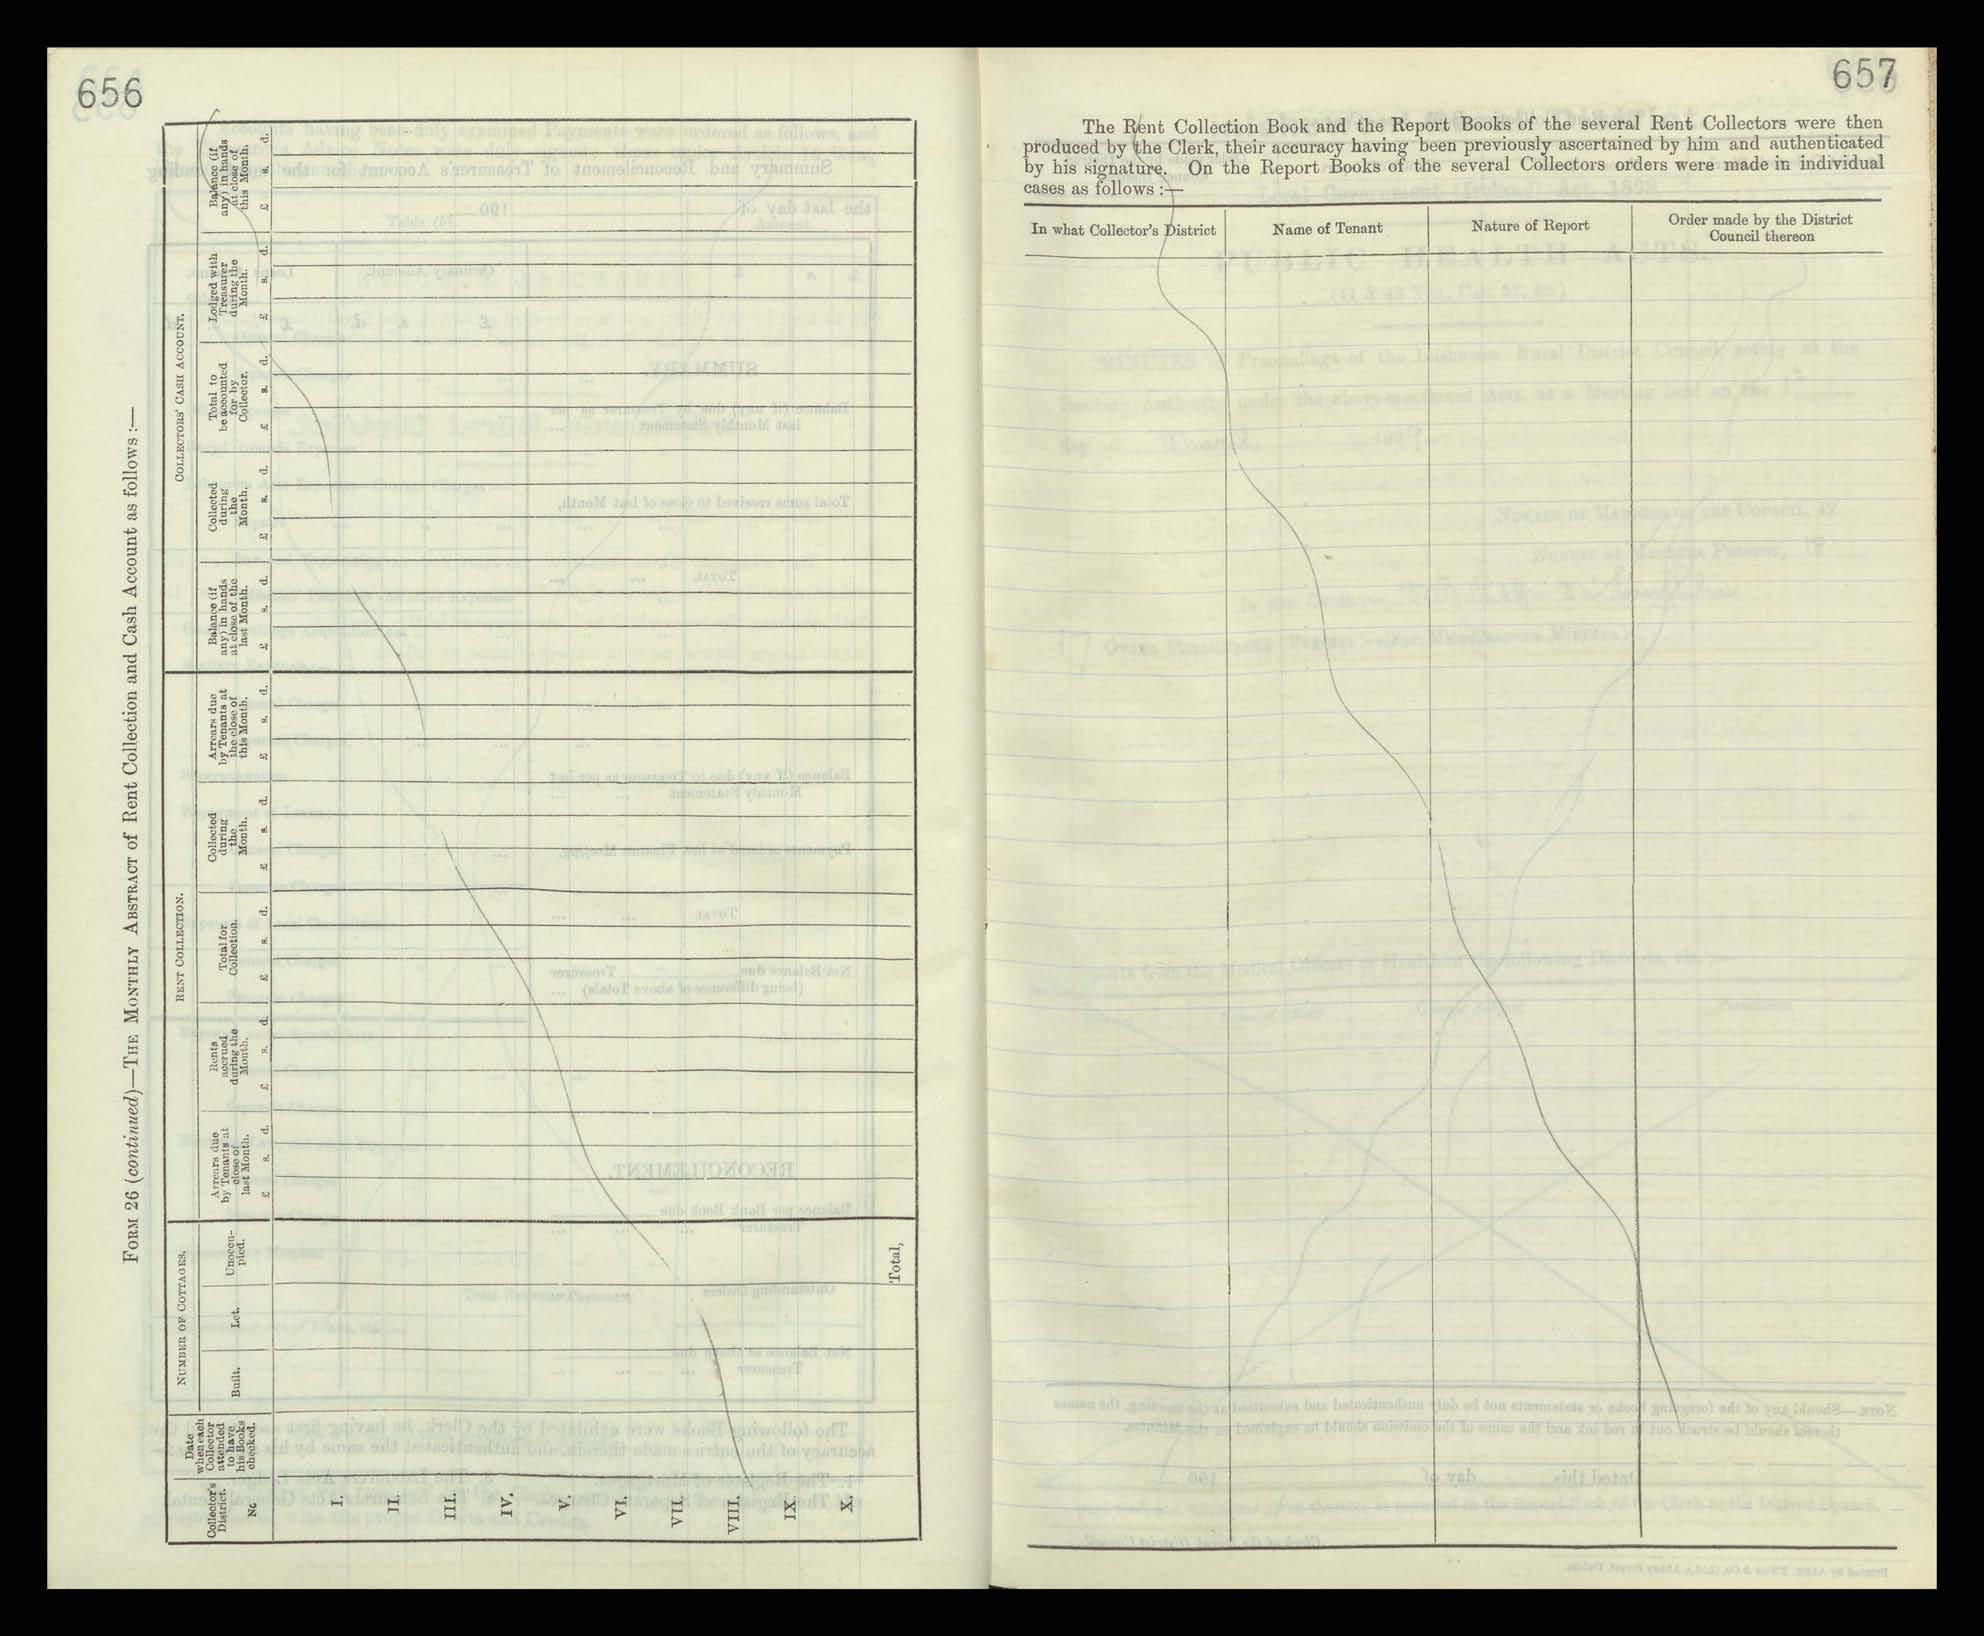 656
FORM 26 (continued)—THE MONTHLY ABSTRACT of Rent Collection and Cash Account as follows :—
Collector's District.
No
Date when each Collector attended to have his Books checked.
NUMBER OF COTTAGES.
Built.
Let.
Unoccu-
pied.
RENT COLLECTION.
Arrears due
by Tenants at
close of
last Month.
£ s. d.
Rents
accrued
during the
Month.
£ s. d.
Total for
Collection.
£ s. d.
Collected
during
the
Month.
£ s. d.
Arrears due
by Tenants at
the close of
this Month.
£ s. d.
COLLECTORS' CASH ACCOUNT.
Balance (if
any) in hands
at close of the
last Month.
£ s. d.
Collected
during
the
Month.
£ s. d.
Total to
be accounted
for by
Collector.
£ s. d.
Lodged with
Treasurer
during the
Month.
£ s. d.
Balance (if
any) in hands
at close of
this Month.
£ s. d.
I.
II.
III.
IV.
V.
VI.
VII.
VIII.
IX.
X.
Total,
657
The Rent Collection Book and the Report Books of the several Rent Collectors were then
produced by the Clerk, their accuracy having been previously ascertained by him and authenticated
by his signature. On the Report Books of the several Collectors orders were made in individual
cases as follows :—
In what Collector's District
Name of Tenant
Nature of Report
Order made by the District
Council thereon